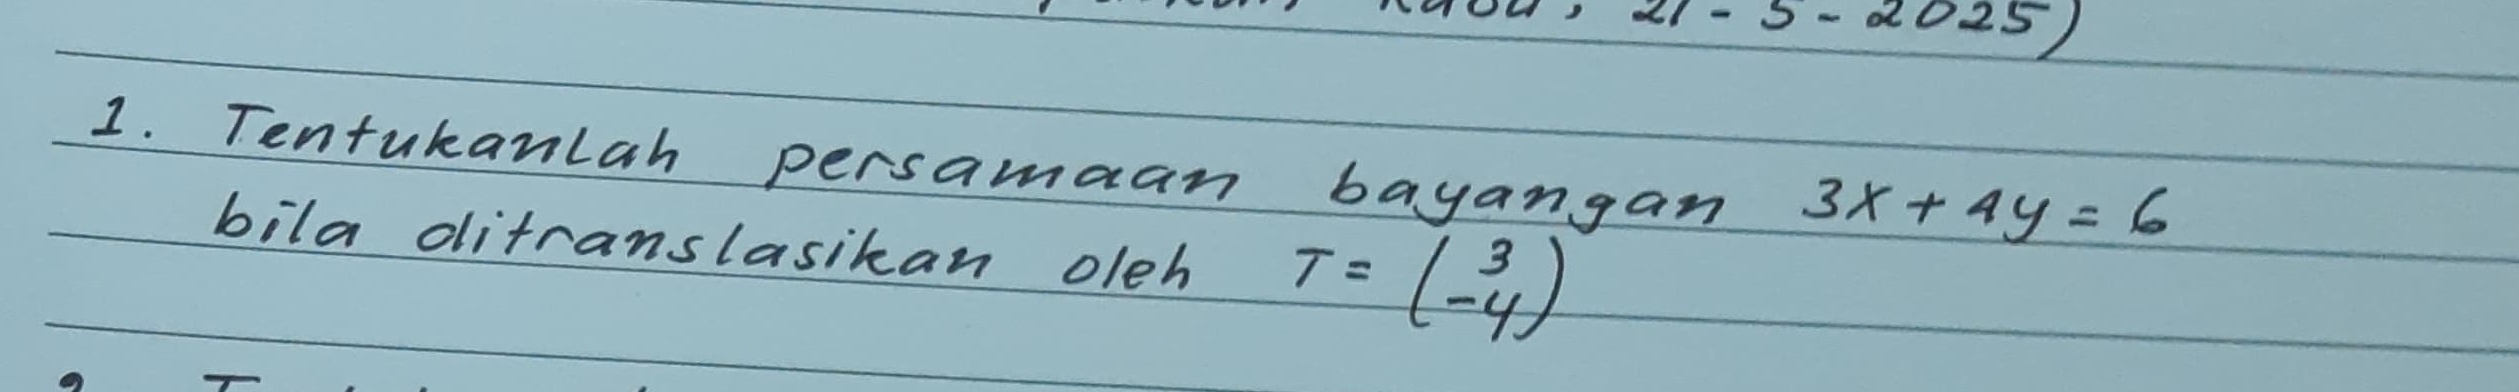 21-5-2025)
1. Tentukanlah persamaan bayangan 3x + 4y = 6
bila ditranslasikan oleh T = (3
-4)